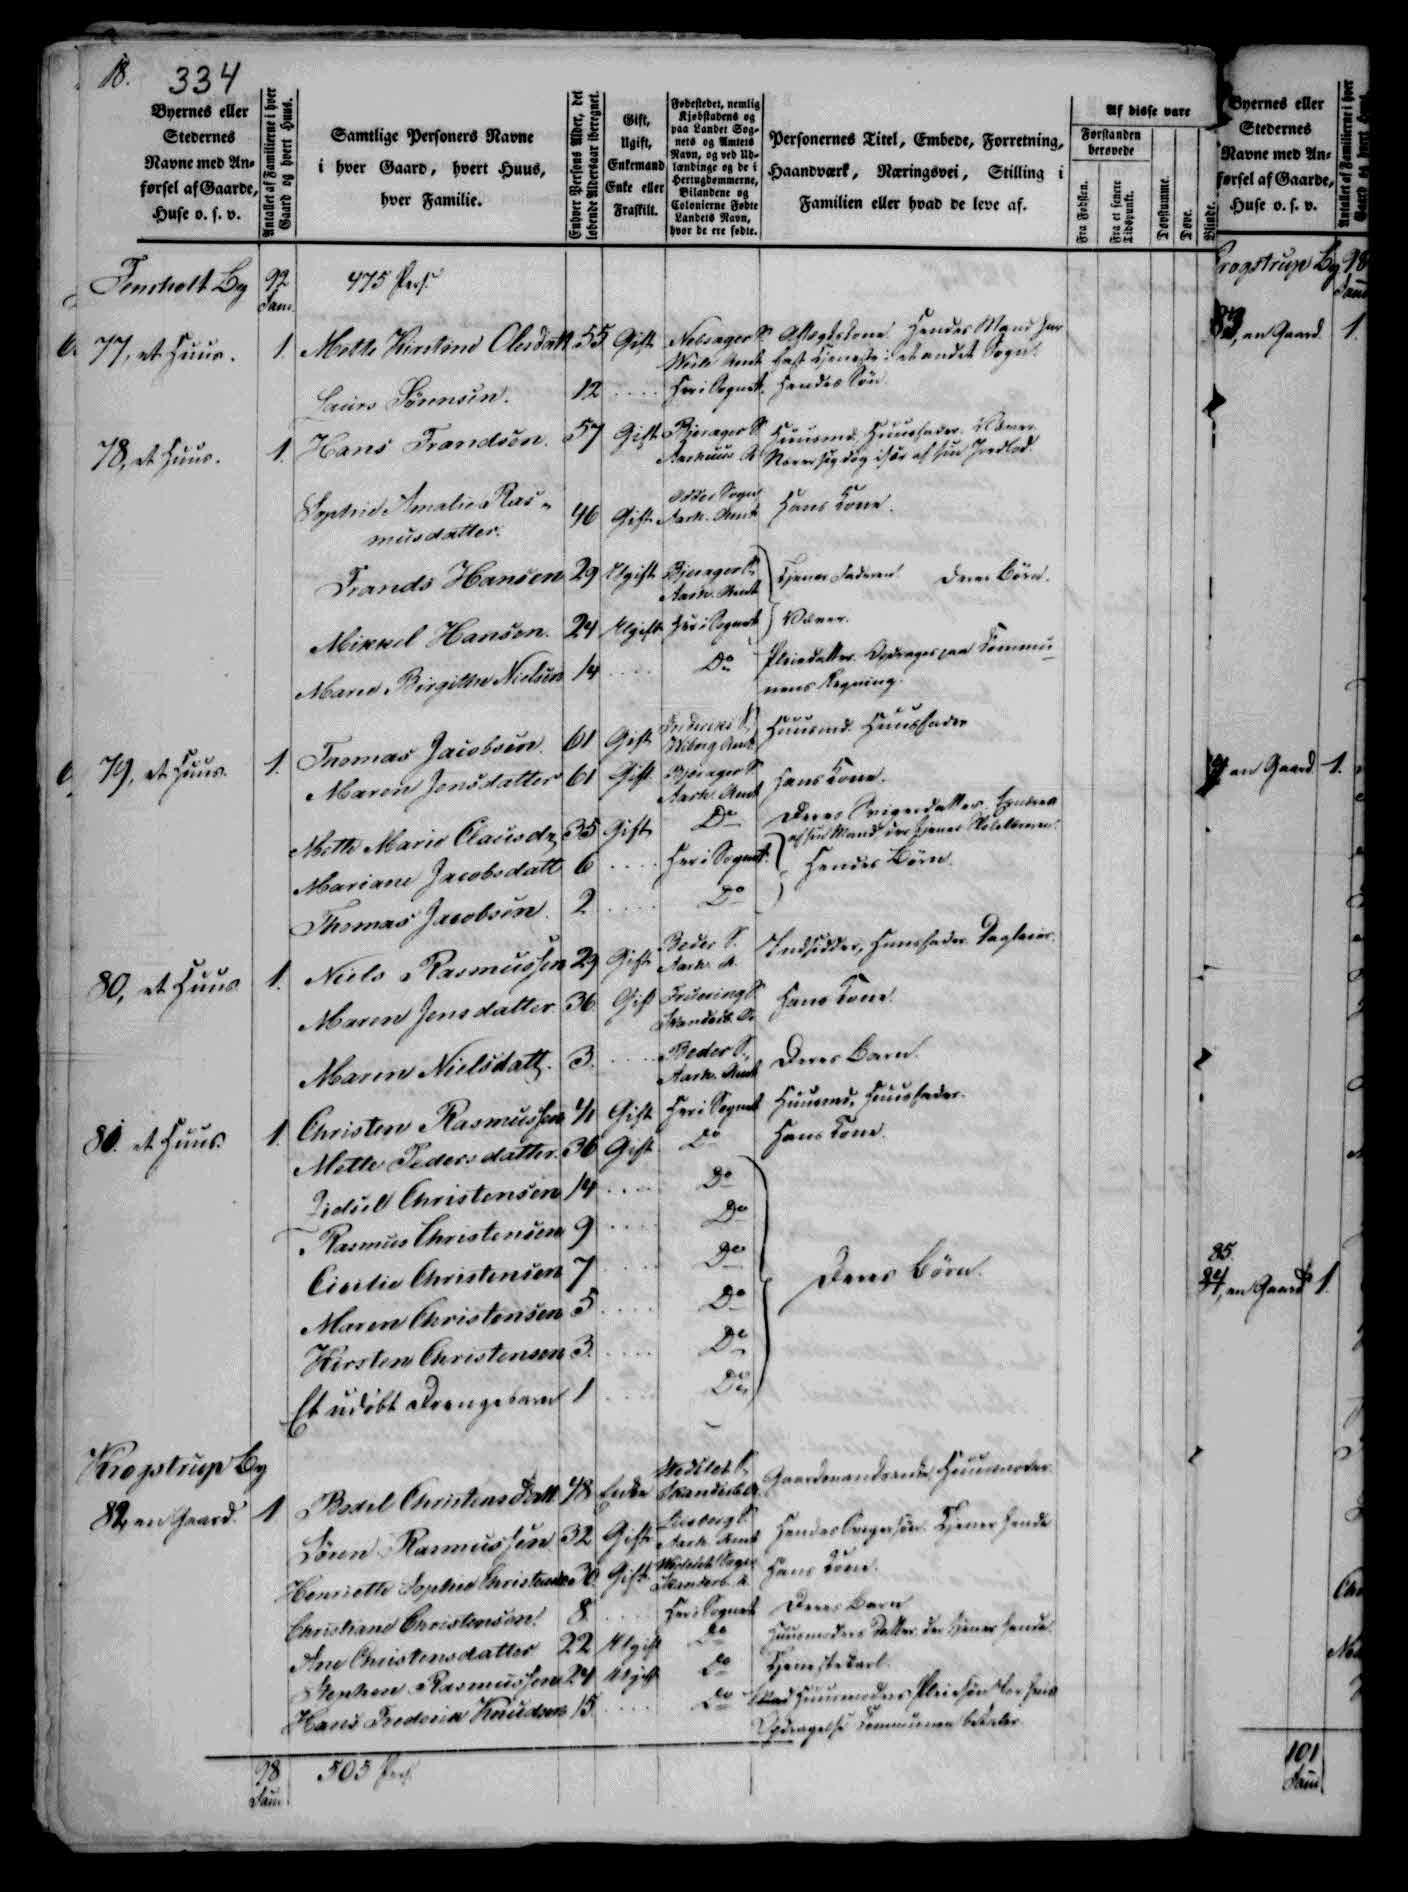 18.
334
Byernes eller
Stedernes
Navne med An-
førsel af Gaarde,
Huse o. s. v.
Antallet af Familierne i hver
Gaard og hvert Huus.
Samtlige Personers Navne
i hver Gaard, hvert Huus,
hver Familie.
Enhver Persons Alder, det
løbende Aldersaar iberegnet.
Gift,
Ugift,
Enkemand
Enke eller
Fraskilt.
Fødestedet, nemlig
Kjøbstadens og
paa Landet Sog-
nets og Amtets
Navn, og ved Ud-
lændinge og de i
Hertugdømmerne,
Bilandene og
Colonierne Fødte
Landets Navn,
hvor de ere fødte.
Personernes Titel, Embede, Forretning,
Haandværk, Næringsvei, Stilling i
Familien eller hvad de leve af.
Af disse vare
Forstanden
berøvede
Fra Fødslen.
Fra et senere
Tidspunkt.
Døvstumme.
Døve.
Blinde.
Fensholt By 92 475 Pers.
Fam.
77, et Huus. 1. Mette Kirstine Olesdatt 55 Gift Nebsager S. Aftægtskone Hendes Mand har
Weile Amt fast Tjeneste i et andet Sogn.
Laurs Sørensen. 12 .... Her i Sognet. Hendes Søn.
78, et Huus. 1. Hans Frandsen. 57 Gift Bjerager S. Huusmd. Huusfader. Væver
Aarhuus A. Nærer sig dog især af sin Jordlod.
Sophie Amalie Ras- 46 Gift Odder Sogn Hans Kone.
musdatter. Aarh. Amt
Frands Hansen 29 Ugift Bjerager S. Tjener Faderen Deres Børn.
Aarh. Amt
Mikkel Hansen. 24 Ugift Her i Sognet Væver.
Maren Birgitte Nielsen 14 .... Do Pleiedatter. Opdrages paa Kommu-
nens Regning.
79, et Huus. 1. Thomas Jacobsen. 61 Gift Huusmd. Huusfader
Wiborg Amt.
Maren Jensdatter 61 Gift Bjerager S. Hans Kone.
Aarh. Amt
Mette Marie Clausd. 35 Gift Do Deres Svigerdatter.
af sin Mand, der tjener
Mariane Jacobsdatt 6 .... Her i Sognet. Hendes Børn.
Thomas Jacobsen. 2 .... Do
80, et Huus 1. Niels Rasmussen 29 Gift Beder S. Indsidder, Huusfader Dagleier.
Aarh. A.
Maren Jensdatter 36 Gift Fruering S. Hans Kone.
Skanderb. A.
Maren Nielsdatt. 3. .... Beder S. Deres Barn.
Aarh. Amt
81. et Huus. 1. Christen Rasmussen 41 Gift Her i Sognet Huusmd. Huusfader.
Mette Pedersdatter. 36 Gift Do Hans Kone.
Sidsel Christensen 14 .... Do
Rasmus Christensen 9 .... Do
Cicilie Christensen 7 .... Do Deres Børn.
Maren Christensen 5 .... Do
Kirsten Christensen 3. .... Do
Et udøbt Drengebarn 1 .... Do
Krogstrup By
82, en Gaard. 1 Bodel Christensdatt 48 Enke Wedslet S. Gaardmandsenke, Huusmoder.
Skanderb. A.
Søren Rasmussen 32 Gift Aarh. Amt Hendes Svigersøn. Tjener hende
Henriette Sophie Christensen 30 Gift Wedslet Sogn Hans Kone.
Skanderb. A.
Christiane Christensen. 8 .... Her i Sognet Deres Barn
Ane Christensdatter 22 Ugift Do Huusmoders Datter der tjener hende.
Stephen Rasmussen 24 Ugift Do Tjenestekarl.
Hans Frederik Knudsen 15 .... Do Huusmoders Pleiesøn for hvis
Opdragelse Communen betaler.
98 505 Pers.
Fam.
Byernes eller
Stedernes
Navne med An-
førsel af Gaarde,
Huse o. s. v.
Antallet af Familierne i hver
Gaard og hvert Huus.
Krogstrup By 98
Fam
en Gaard 1.
en Gaard 1.
85.
84, en Gaard 1.
101
Fam